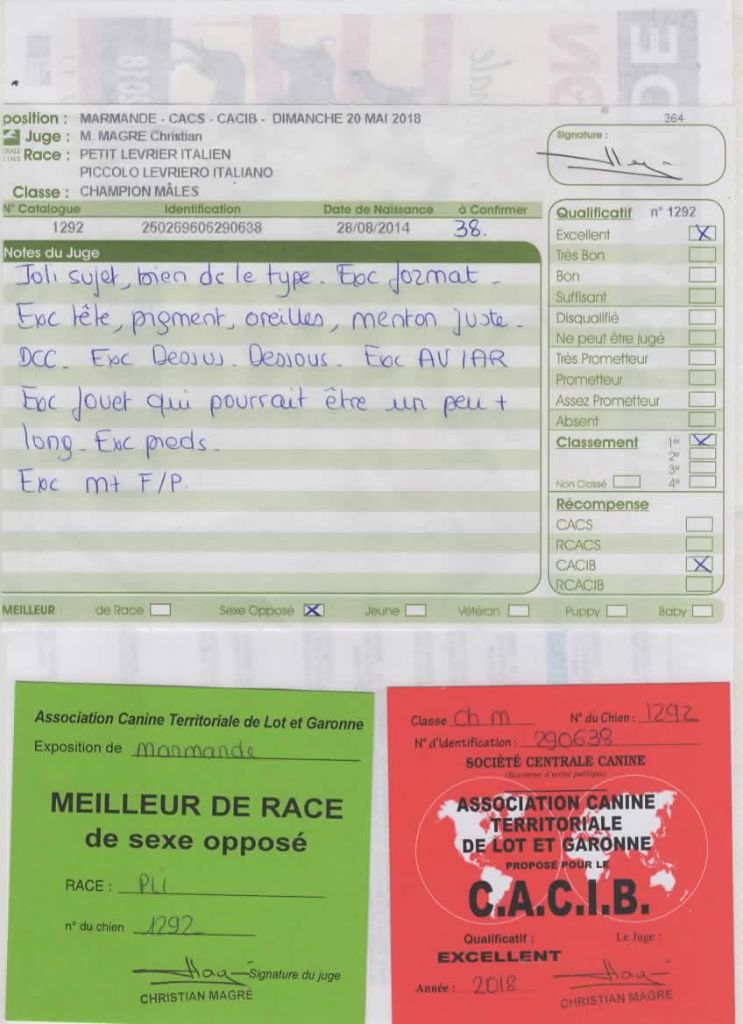 position : MARMANDE - CACS - CACIB - DIMANCHE 20 MAI 2018
364
Juge : M. MAGRE Christian
Race : PETIT LEVRIER ITALIEN
PICCOLO LEVRIERO ITALIANO
Classe : CHAMPION MÂLES
Signature :
N° Catalogue Identification Date de Naissance à Confirmer
1292 250269606290638 28/08/2014 38.
Notes du Juge
Joli sujet, bien ds le type. Exc format.
Exc tête, pigment, oreilles, menton juste.
DCC. Exc Dessus. Dessous. Exc AV IAR
Exc fouet qui pourrait être un peu +
long. Exc pieds.
Exc mt F/P.
Qualificatif n° 1292
Excellent X
Très Bon
Bon
Suffisant
Disqualifié
Ne peut être jugé
Très Prometteur
Prometteur
Assez Prometteur
Absent
Classement 1er X
2e
3e
Non Classé 4e
Récompense
CACS
RCACS
CACIB X
RCACIB
MEILLEUR : de Race Sexe Opposé X Jeune Vétéran Puppy Baby
Association Canine Territoriale de Lot et Garonne
Exposition de Marmande
MEILLEUR DE RACE
de sexe opposé
RACE : PLI
n° du chien 1292
Signature du juge
CHRISTIAN MAGRÉ
Classe Ch m N° du Chien : 1292
N° d'Identification : 290638
SOCIÉTÉ CENTRALE CANINE
(Reconnue d'utilité publique)
ASSOCIATION CANINE
TERRITORIALE
DE LOT ET GARONNE
PROPOSÉ POUR LE
C.A.C.I.B.
Qualificatif : Le Juge :
EXCELLENT
Année : 2018
CHRISTIAN MAGRÉ